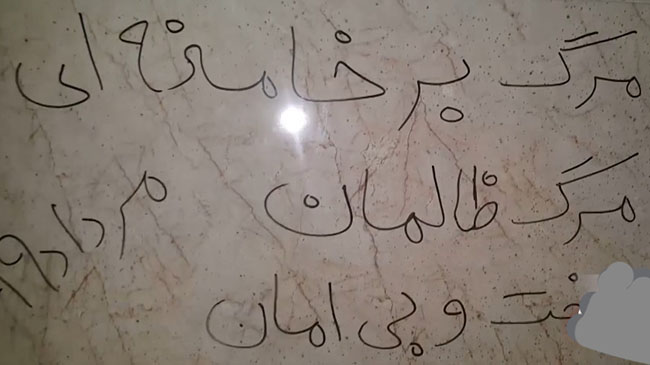 مرگ بر خامنه ای
مرگ ظالمان مرداد
خت و بی امان